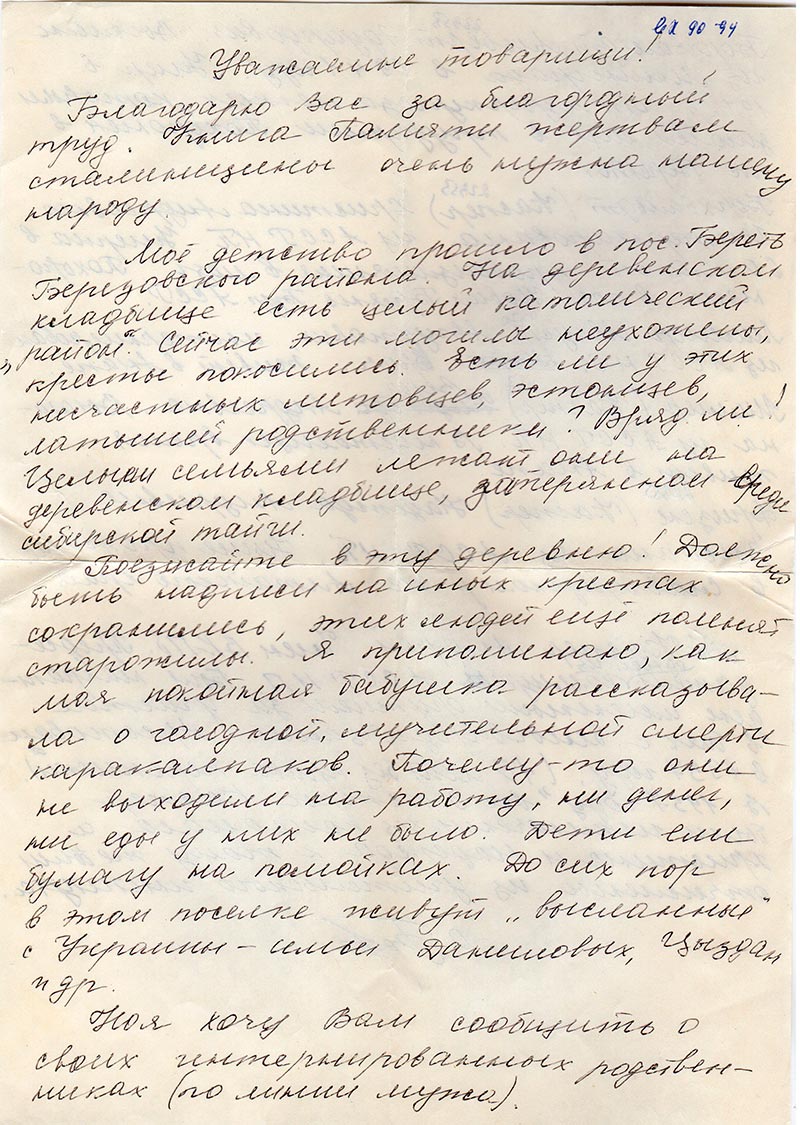 90-94
Уважаемые товарищи!
Благодарю Вас за благородный
труд. Книга Памяти жертвам
сталинщины очень нужна нашему
народу.
Моё детство прошло в пос. Береть
Березовского района. На деревенском
кладбище есть целый католический
„район“. Сейчас эти могилы неухожены,
кресты покосились. Есть ли у этих
несчастных литовцев, эстонцев,
латышей родственники? Вряд ли!
Целыми семьями лежат они на
деревенском кладбище, затерянном среди
сибирской тайги.
Поезжайте в эту деревню! Должно
быть надписи на иных крестах
сохранились, этих людей ещё помнят
старожилы. Я припоминаю, как
моя покойная бабушка рассказыва-
ла о голодной, мучительной смерти
каракалпаков. Почему-то они
не выходили на работу, ни денег,
ни еды у них не было. Дети ели
бумагу на помойках. До сих пор
в этом поселке живут „высланные“
с Украины – семьи Даниловых, Цыздан
и др.
Но я хочу Вам сообщить о
своих интернированных родствен-
никах (по линии мужа).